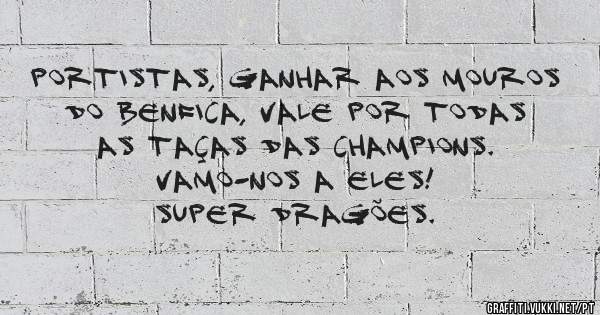 PORTISTAS, GANHAR AOS MOUROS
DO BENFICA, VALE POR TODAS
AS TAÇAS DAS CHAMPIONS.
VAMO-NOS A ELES!
SUPER DRAGÕES.
GRAFFITI.VUKKI.NET/PT